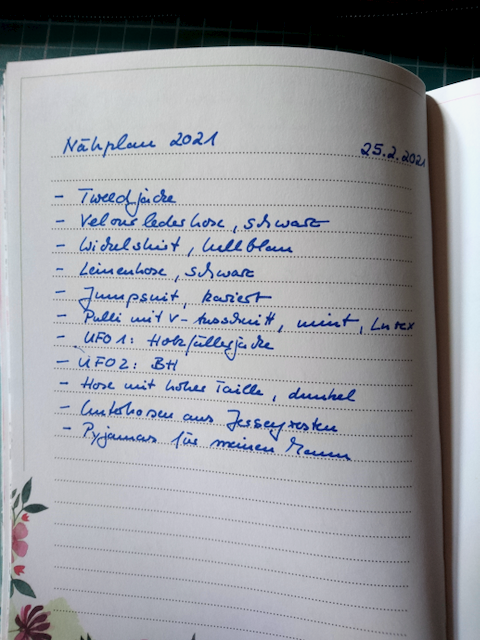 Nähplan 2021 25.2.2021
- Tweedjacke
- Velourslederhose, schwarz
- Wickelshirt, hellblau
- Leinenhose, schwarz
- Jumpsuit, kariert
- Pulli mit V-Ausschnitt, mint, Lurex
- UFO1: Holzfällerjacke
- UFO2: BH
- Hose mit hoher Taille, dunkel
- Unterhosen aus Jerseyresten
- Pyjamas für meinen Mann